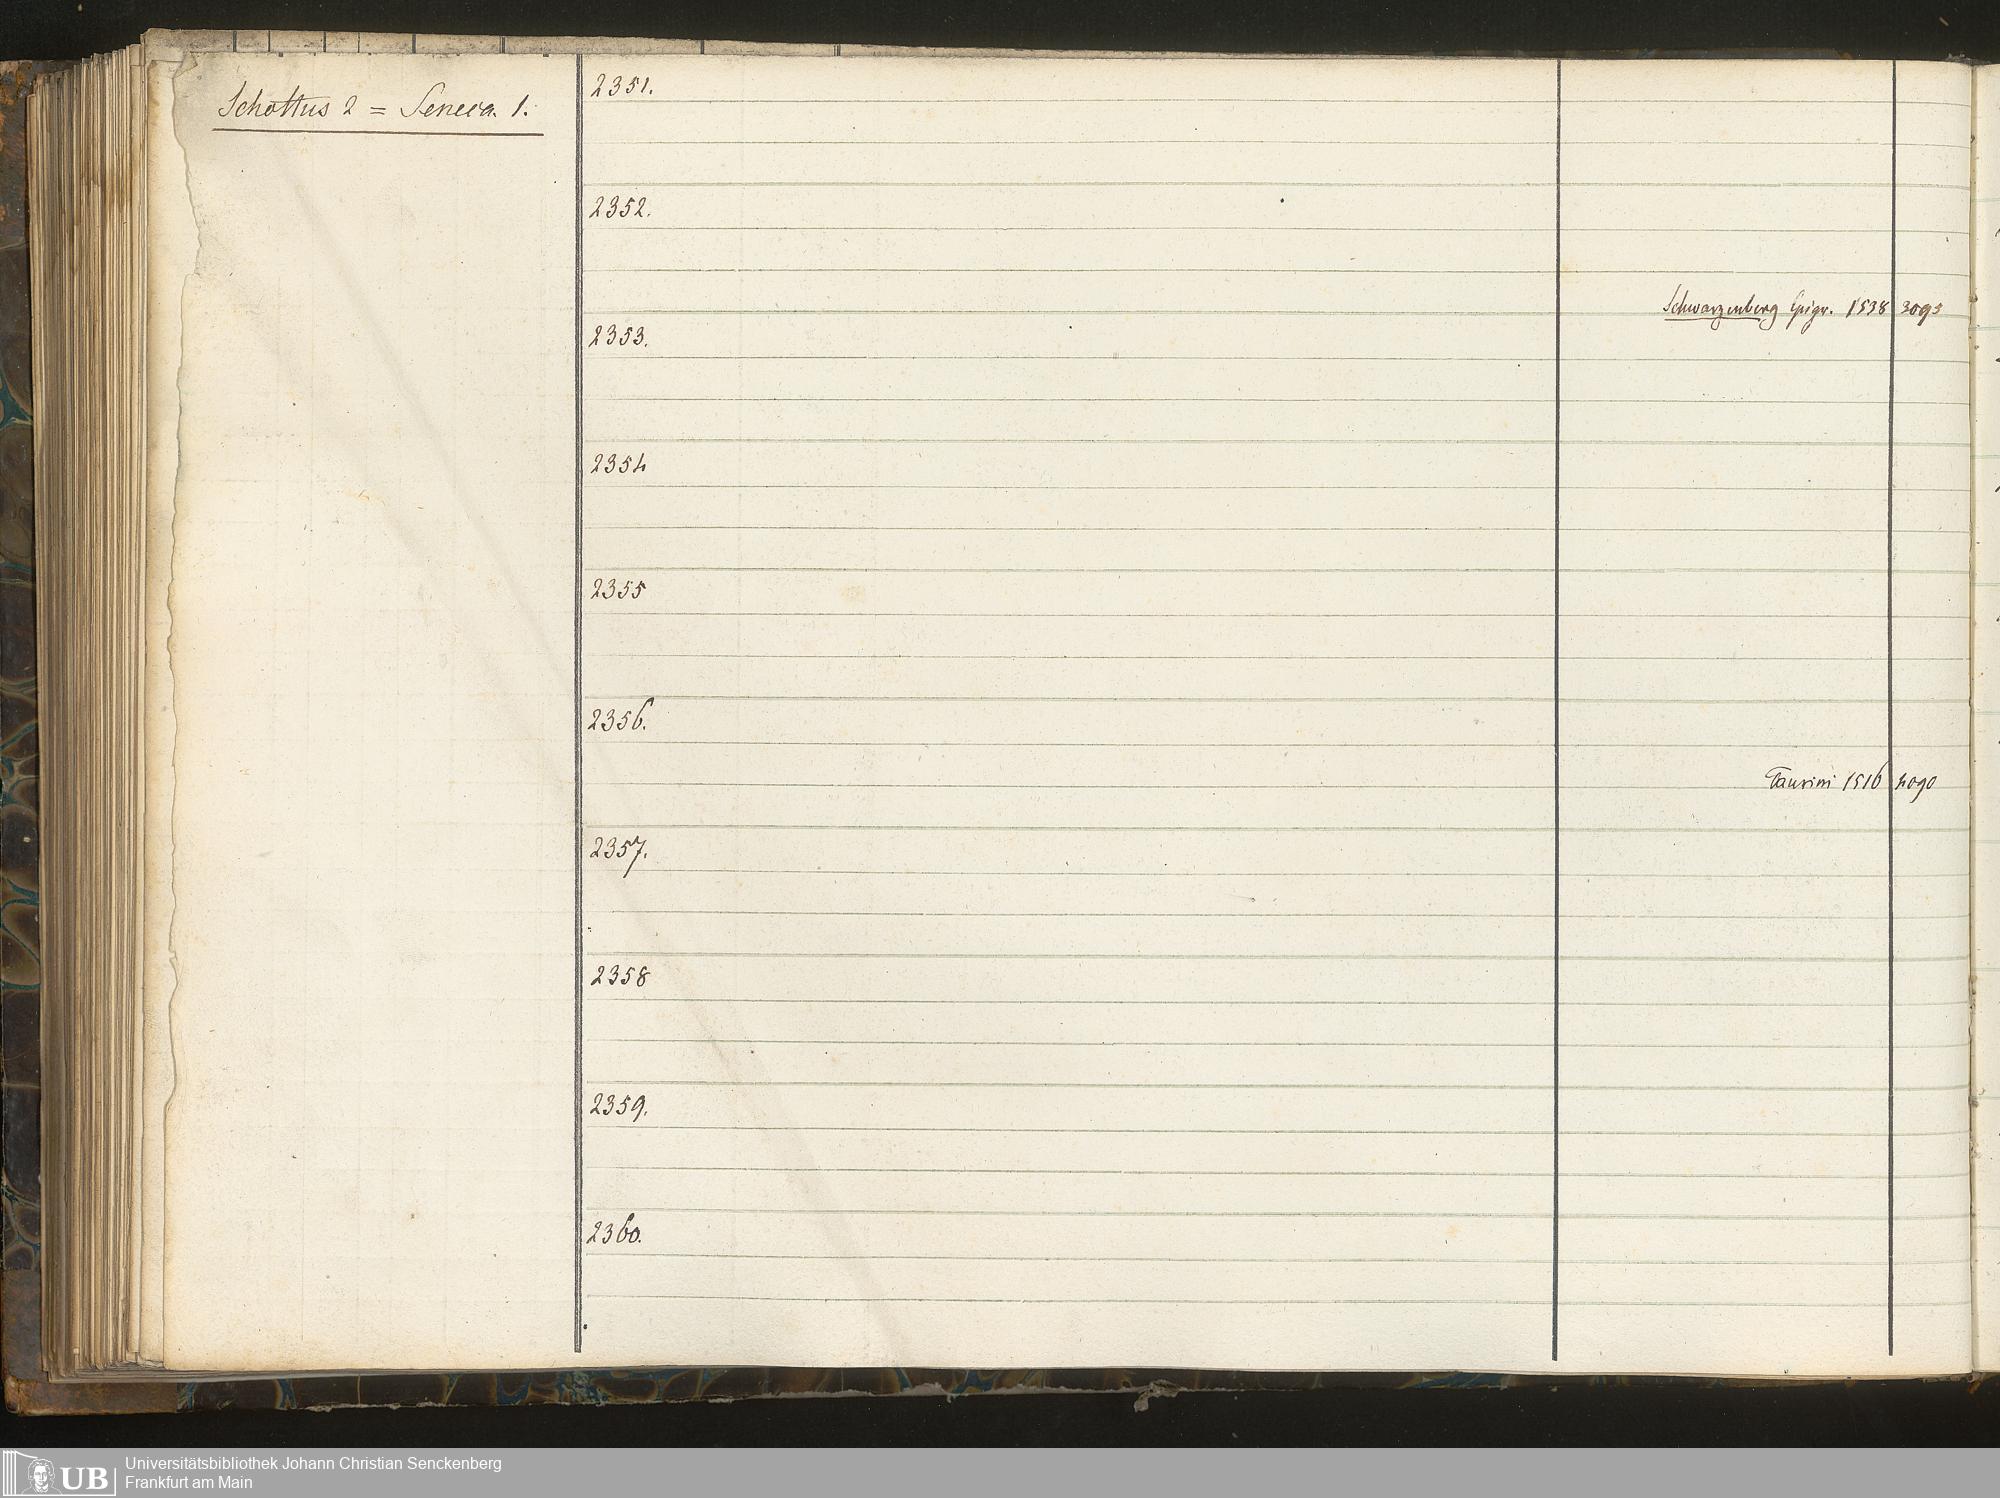 Schottus 2 = Seneca. 1.
2351.
2352.
Schwarzenberg Epigr. 1538 3095
2353.
2354
2355
2356.
Taurini 1516 4090
2357.
2358
2359.
2360.
UB
Universitätsbibliothek Johann Christian Senckenberg
Frankfurt am Main